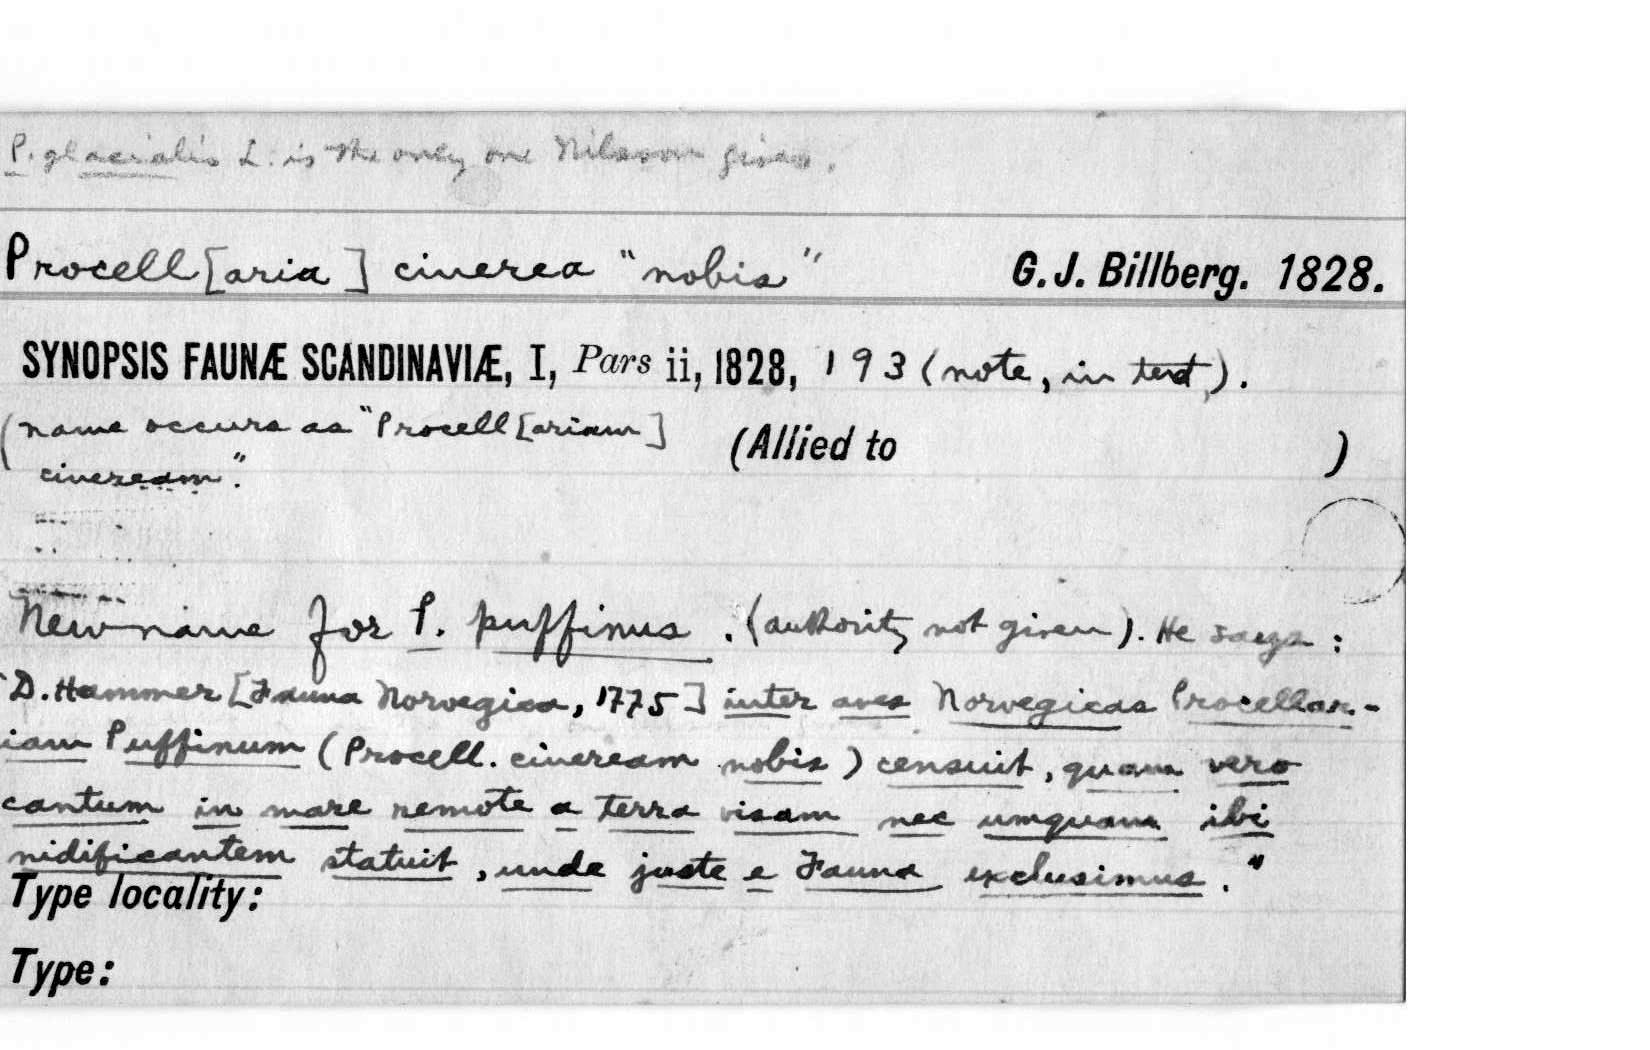 P. glacialis L. is the only one Nilsson gives.
Procell[aria] cinerea "nobis" G. J. Billberg. 1828.
SYNOPSIS FAUNÆ SCANDINAVIÆ, I, Pars ii, 1828, 193 (note, in text).
(name occurs as "Procell[ariam]
cineream". (Allied to )
New name for P. puffinus. (authority not given). He says:
"D. Hammer [Fauna Norvegica, 1775] inter aves Norvegicas Procellar-
iam Puffinum (Procell. cineream nobis) censuit, quam vero
cantum in mare remote a terra visam nec umquam ibi
nidificantem statuit, unde juste e Fauna exclusimus."
Type locality:
Type: